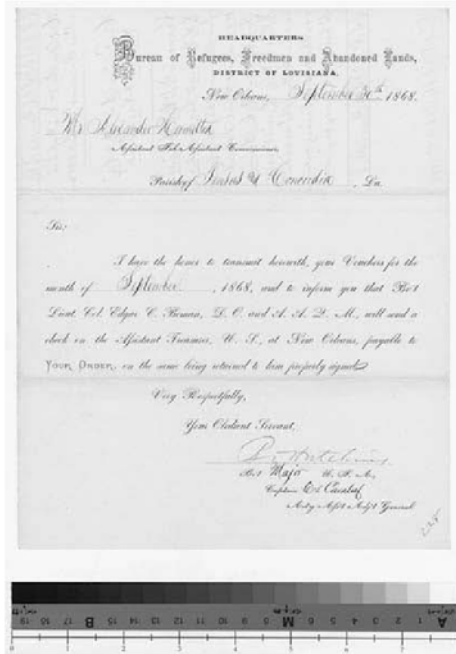 HEADQUARTERS
Bureau of Refugees, Freedmen and Abandoned Lands,
DISTRICT OF LOUISIANA,
New Orleans, September 30th 1868.
Mr Alexander Hamilton
Assistant Sub Assistant Commissioner,
Parish of Tensas & Concordia, La
Sir:
I have the honor to transmit herewith, your Vouchers for the
month of September, 1868, and to inform you that Bvt
Lieut. Col. Edgar C. Bowman, D. O. and A. A. Q. M., will send a
check on the Assistant Treasurer, U. S., at New Orleans, payable to
YOUR ORDER, on the same being returned to him properly signed.
Very Respectfully,
Your Obedient Servant,
Hutchins
Bvt Major U. S. A.,
Captain
Actg Asst Adjt General